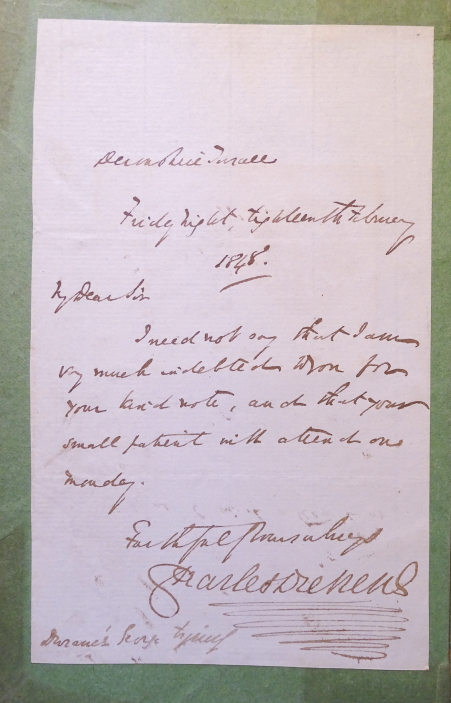 Devonshire Terrace
Friday Night, Eighteenth February
1848.
My Dear Sir
I need not say that I am
very much indebted to you for
your kind note, and that your
small patient will attend on
Monday.
Faithfully Yours always
Charles Dickens
George